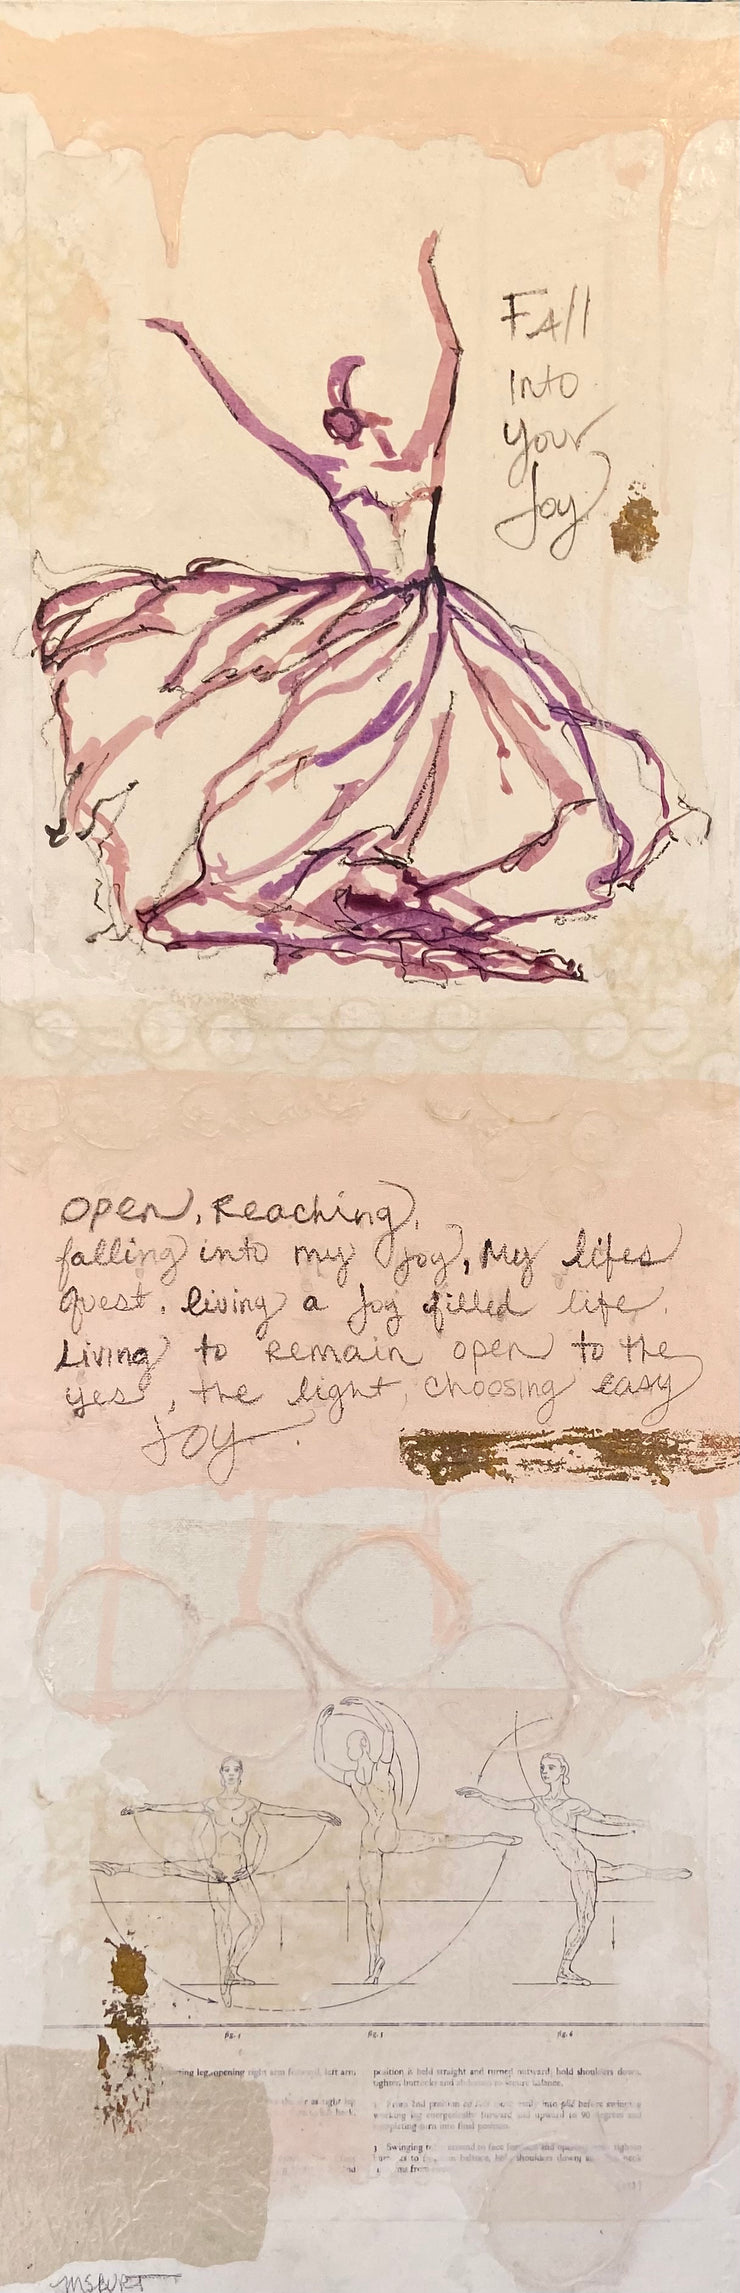 Fall
Into
Your
Joy
Open, Reaching,
falling into my joy, My lifes
quest, living a joy filled life.
Living to remain open to the
yes, the light, choosing easy
Joy.
fig. 6
leg, opening right arm forward, left arm
position is held straight and turned outward; hold shoulders down,
tighten buttocks and abdomen to secure balance.
From 2nd position into plié before swinging
working leg energetically forward and upward to 90 degrees and
completing turn into final position.
3 Swinging to face
hold shoulders down;
MSBURT